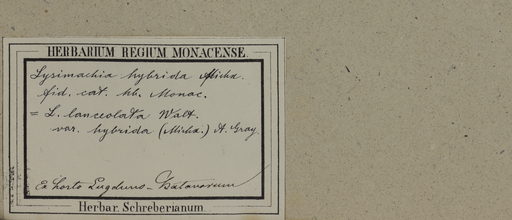 HERBARIUM REGIUM MONACENSE.
Lysimachia hybrida Michx.
fid. cat. hb. Monac.
= L. lanceolata Walt.
var. hybrida (Michx.) A. Gray.
Ex horto Lugduno-Batavorum
Herbar. Schreberianum.